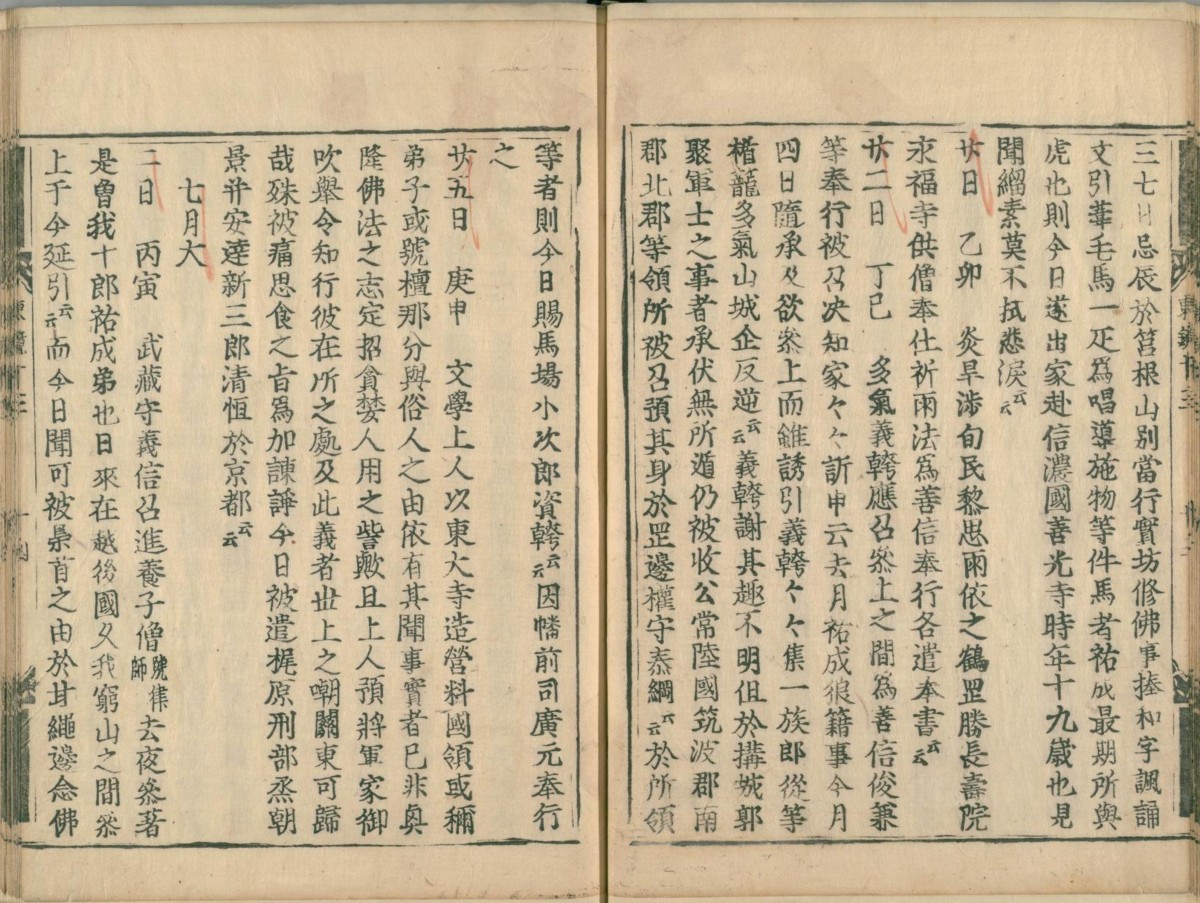 三七日忌辰於筥根山別當行實坊修佛事捧和字諷誦
文引葦毛馬一疋爲唱導施物等件馬者祐成最期所與
虎也則今日遂出家赴信濃國善光寺時年十九歳也見
聞緇素莫不拭悲涙云云
廿日　乙卯　炎旱渉旬民黎思雨依之鶴罡勝長壽院
永福寺供僧奉仕祈雨法爲善信奉行各遣奉書云云
廿二日　丁巳　多氣義幹應召參上之間爲善信俊兼
等奉行被召决知家々々訴申云去月祐成狼籍事今月
四日隨承及欲參上而雖誘引義幹々々集一族郎從等
楯籠多氣山城企反逆云云義幹謝其趣不明但於搆城郭
聚軍士之事者承伏無所遁仍被收公常陸國筑波郡南
郡北郡等領所被召預其身於罡邊權守泰綱云云於所領
等者則今日賜馬場小次郎資幹云云因幡前司廣元奉行
之
廿五日　庚申　文學上人以東大寺造營料國領或稱
弟子或號檀那分與俗人之由依有其聞事實者已非奥
隆佛法之志定招貪婪人用之訾歟且上人預將軍家御
吹舉令知行彼在所之處及此義者世上之嘲關東可歸
哉殊被痛思食之旨爲加諫諍今日被遣梶原刑部烝朝
景并安逹新三郎清恒於京都云云
七月大
二日　丙寅　武藏守義信召進養子僧號律師去夜參著
是曽我十郎祐成弟也日來在越後國久我窮山之間參
上于今延引云云而今日聞可被梟首之由於甘繩邊念佛